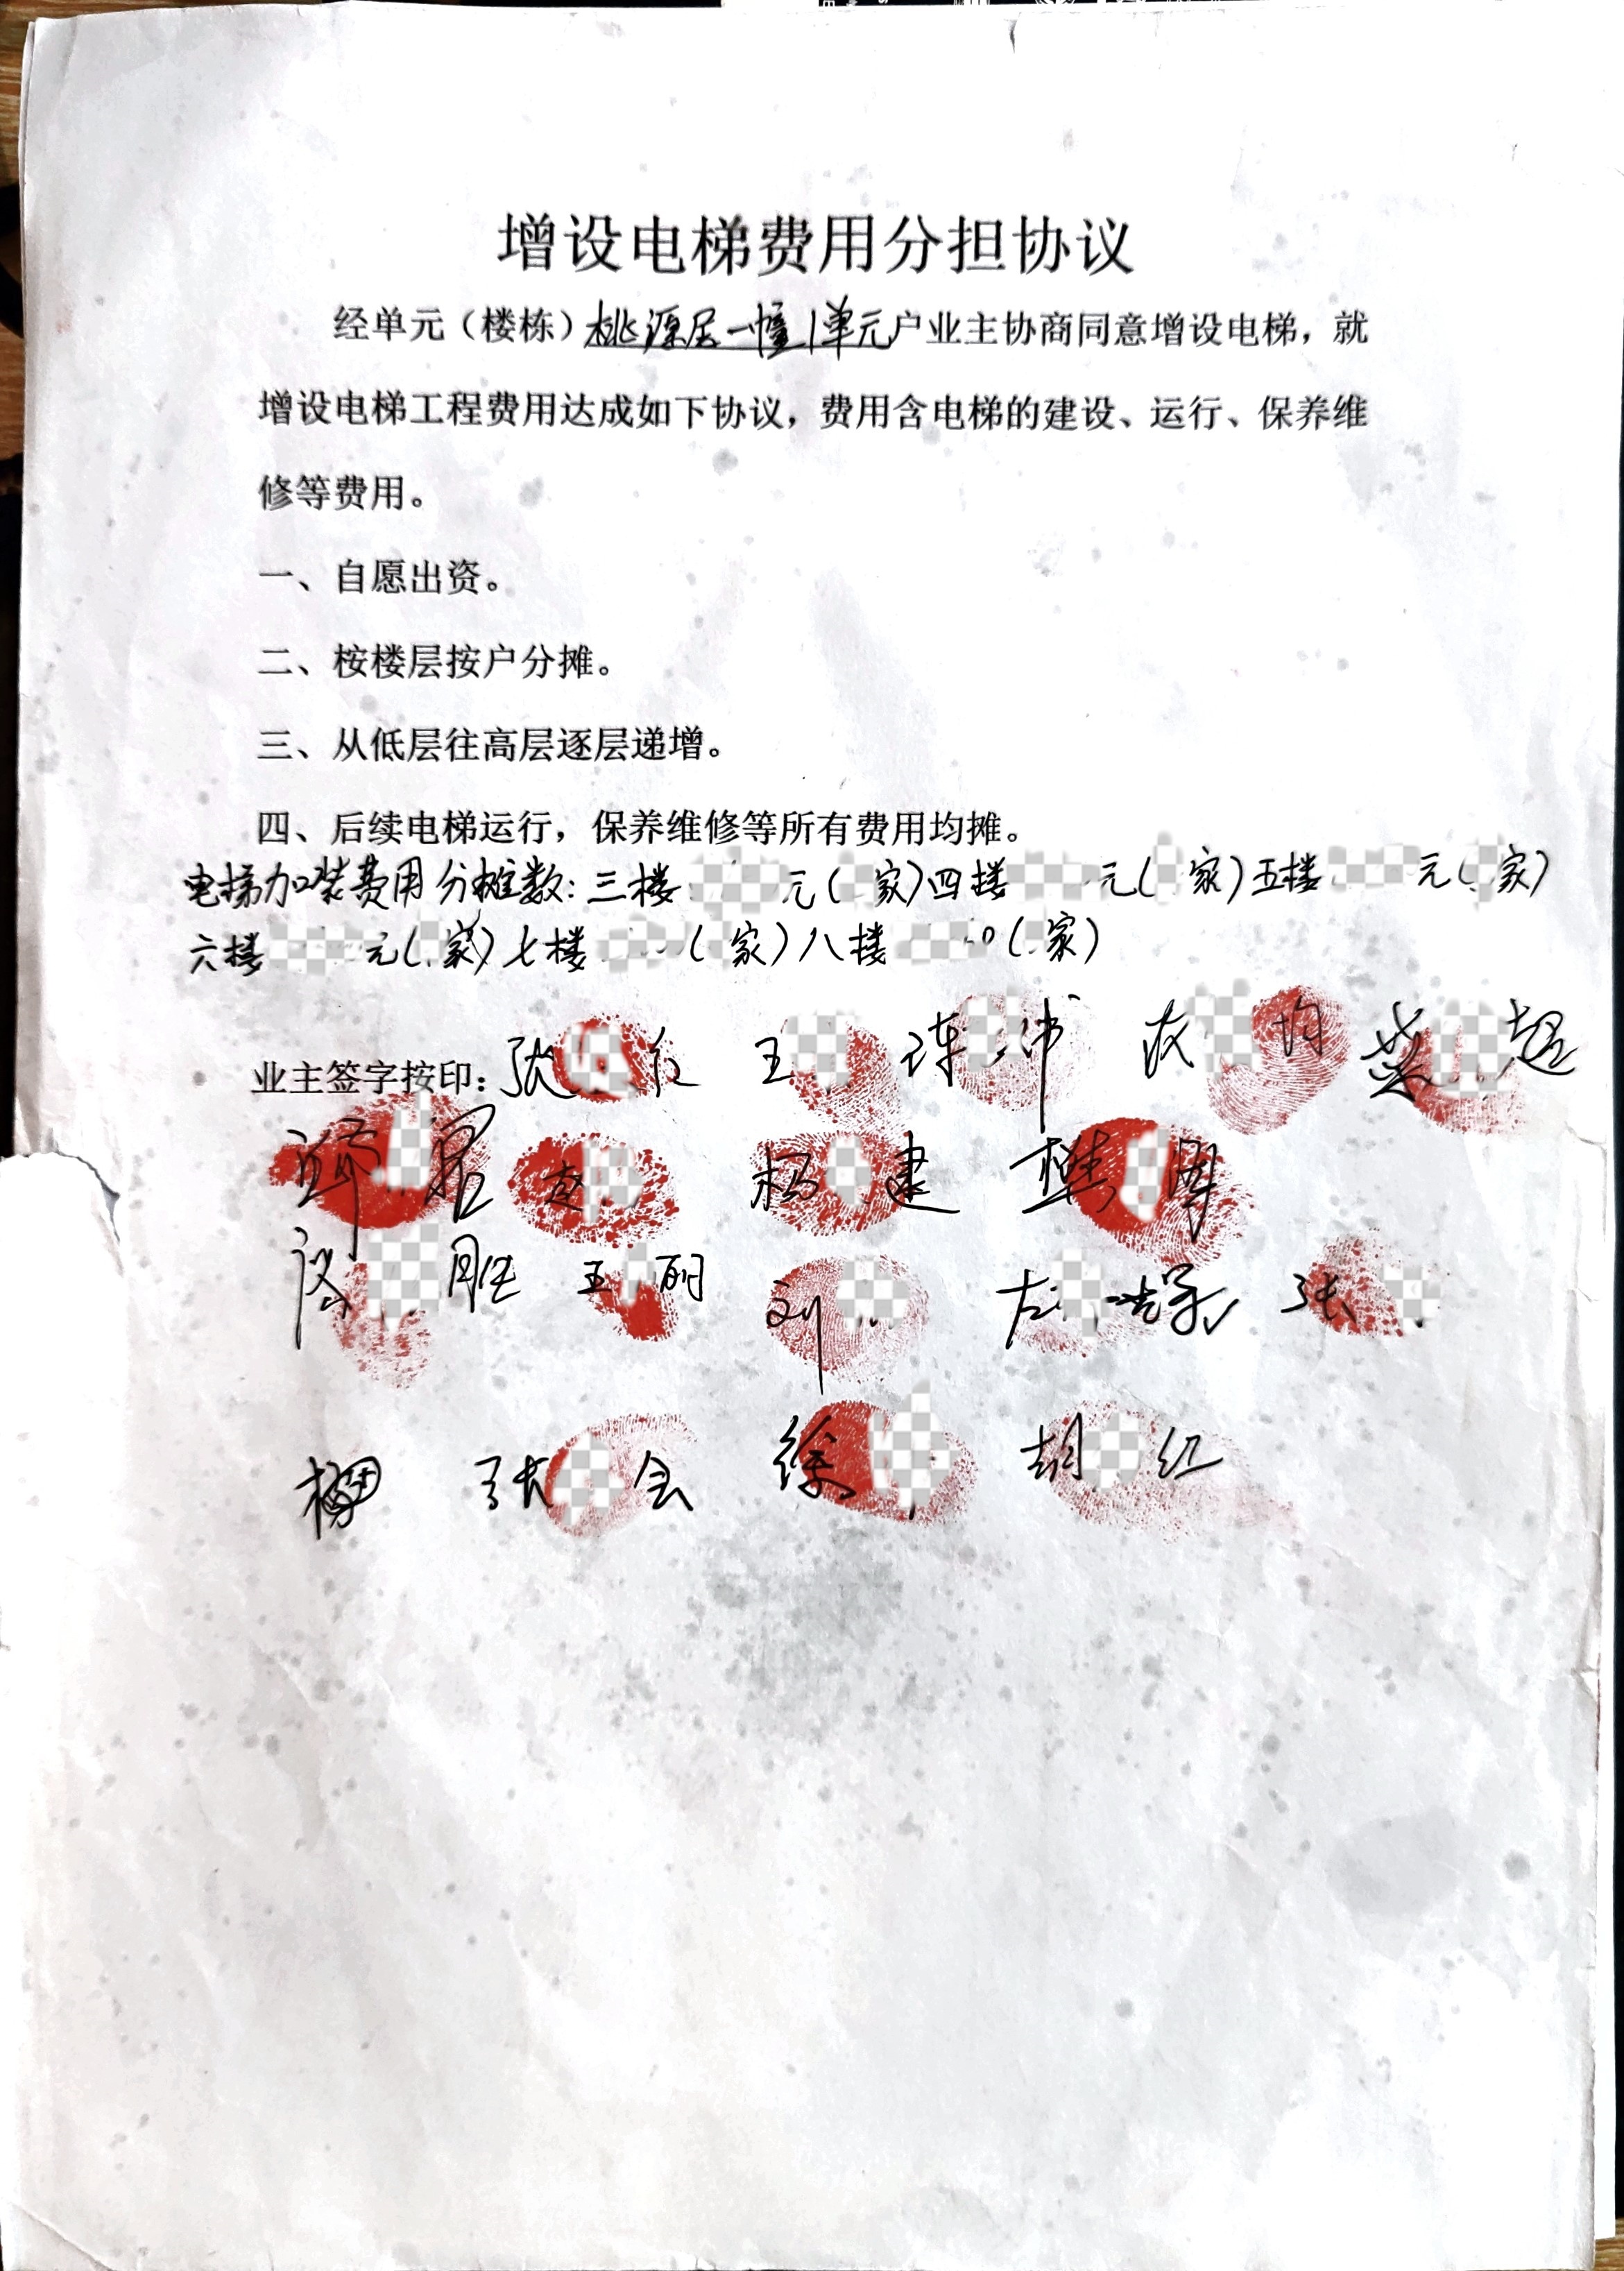 增设电梯费用分担协议
经单元（楼栋）桃源居一幢1单元户业主协商同意增设电梯，就
增设电梯工程费用达成如下协议，费用含电梯的建设、运行、保养维
修等费用。
一、自愿出资。
二、桉楼层按户分摊。
三、从低层往高层逐层递增。
四、后续电梯运行，保养维修等所有费用均摊。
电梯加装费用分摊数：三楼 元( 家)四楼 元( 家)五楼 元( 家)
六楼 元( 家)七楼 ( 家)八楼 0( 家)
业主签字按印：张 红 王 陈 伟 均 超
赵 杨 建 樊
胜 王 丽 刘 左 张
张 会 徐 胡 红